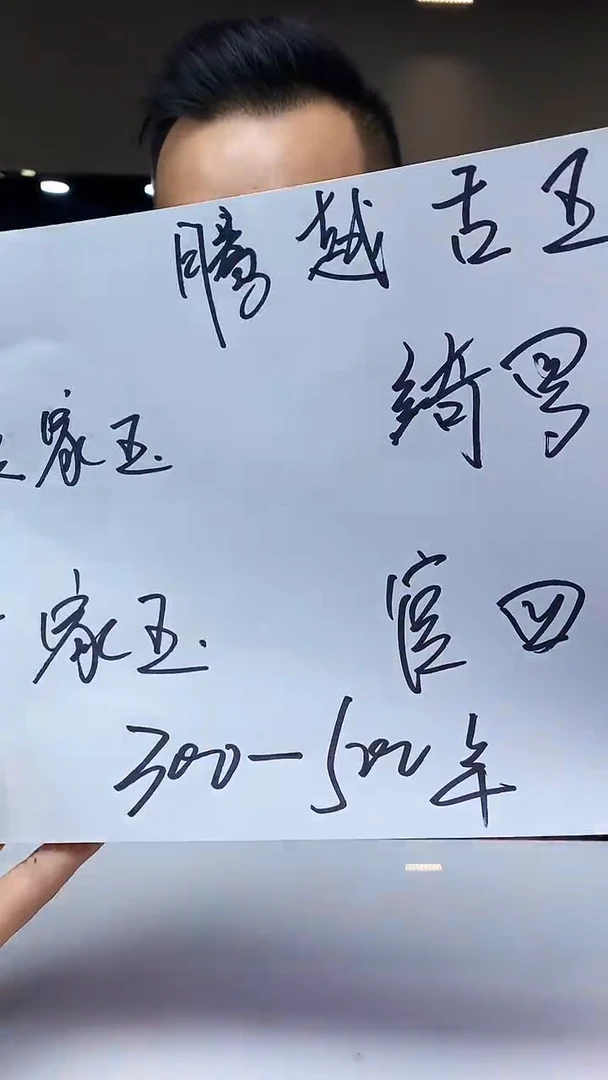 腾越古玉
绮罗
家玉
家玉 官四
300-500年